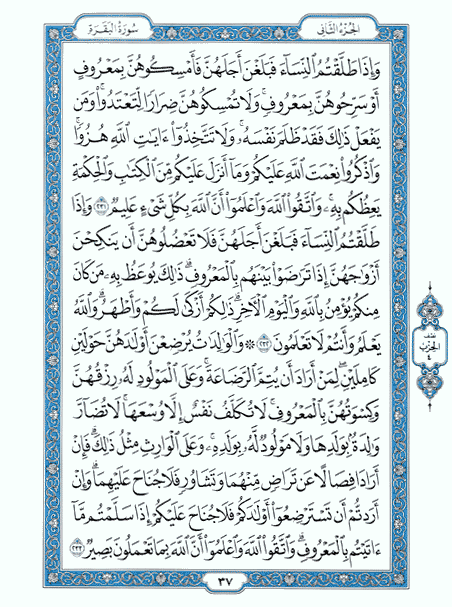 الجزء الثاني
سورة البقرة
وَإِذَا طَلَّقْتُمُ النِّسَاءَ فَبَلَغْنَ أَجَلَهُنَّ فَأَمْسِكُوهُنَّ بِمَعْرُوفٍ
أَوْ سَرِّحُوهُنَّ بِمَعْرُوفٍ ۚ وَلَا تُمْسِكُوهُنَّ ضِرَارًا لِّتَعْتَدُوا ۚ وَمَن
يَفْعَلْ ذَٰلِكَ فَقَدْ ظَلَمَ نَفْسَهُ ۚ وَلَا تَتَّخِذُوا آيَاتِ اللَّهِ هُزُوًا ۚ
وَاذْكُرُوا نِعْمَتَ اللَّهِ عَلَيْكُمْ وَمَا أَنزَلَ عَلَيْكُم مِّنَ الْكِتَابِ وَالْحِكْمَةِ
يَعِظُكُم بِهِ ۚ وَاتَّقُوا اللَّهَ وَاعْلَمُوا أَنَّ اللَّهَ بِكُلِّ شَيْءٍ عَلِيمٌ ٢٣١ وَإِذَا
طَلَّقْتُمُ النِّسَاءَ فَبَلَغْنَ أَجَلَهُنَّ فَلَا تَعْضُلُوهُنَّ أَن يَنكِحْنَ
أَزْوَاجَهُنَّ إِذَا تَرَاضَوْا بَيْنَهُم بِالْمَعْرُوفِ ۗ ذَٰلِكَ يُوعَظُ بِهِ مَن كَانَ
مِنكُمْ يُؤْمِنُ بِاللَّهِ وَالْيَوْمِ الْآخِرِ ۗ ذَٰلِكُمْ أَزْكَىٰ لَكُمْ وَأَطْهَرُ ۗ وَاللَّهُ
يَعْلَمُ وَأَنتُمْ لَا تَعْلَمُونَ ٢٣٢ ۞ وَالْوَالِدَاتُ يُرْضِعْنَ أَوْلَادَهُنَّ حَوْلَيْنِ
كَامِلَيْنِ ۖ لِمَنْ أَرَادَ أَن يُتِمَّ الرَّضَاعَةَ ۚ وَعَلَى الْمَوْلُودِ لَهُ رِزْقُهُنَّ
وَكِسْوَتُهُنَّ بِالْمَعْرُوفِ ۚ لَا تُكَلَّفُ نَفْسٌ إِلَّا وُسْعَهَا ۚ لَا تُضَارَّ
وَالِدَةٌ بِوَلَدِهَا وَلَا مَوْلُودٌ لَّهُ بِوَلَدِهِ ۚ وَعَلَى الْوَارِثِ مِثْلُ ذَٰلِكَ ۗ فَإِنْ
أَرَادَا فِصَالًا عَن تَرَاضٍ مِّنْهُمَا وَتَشَاوُرٍ فَلَا جُنَاحَ عَلَيْهِمَا ۗ وَإِنْ
أَرَدتُّمْ أَن تَسْتَرْضِعُوا أَوْلَادَكُمْ فَلَا جُنَاحَ عَلَيْكُمْ إِذَا سَلَّمْتُم مَّا
آتَيْتُم بِالْمَعْرُوفِ ۗ وَاتَّقُوا اللَّهَ وَاعْلَمُوا أَنَّ اللَّهَ بِمَا تَعْمَلُونَ بَصِيرٌ ٢٣٣
نصف
الحزب
٤
٣٧